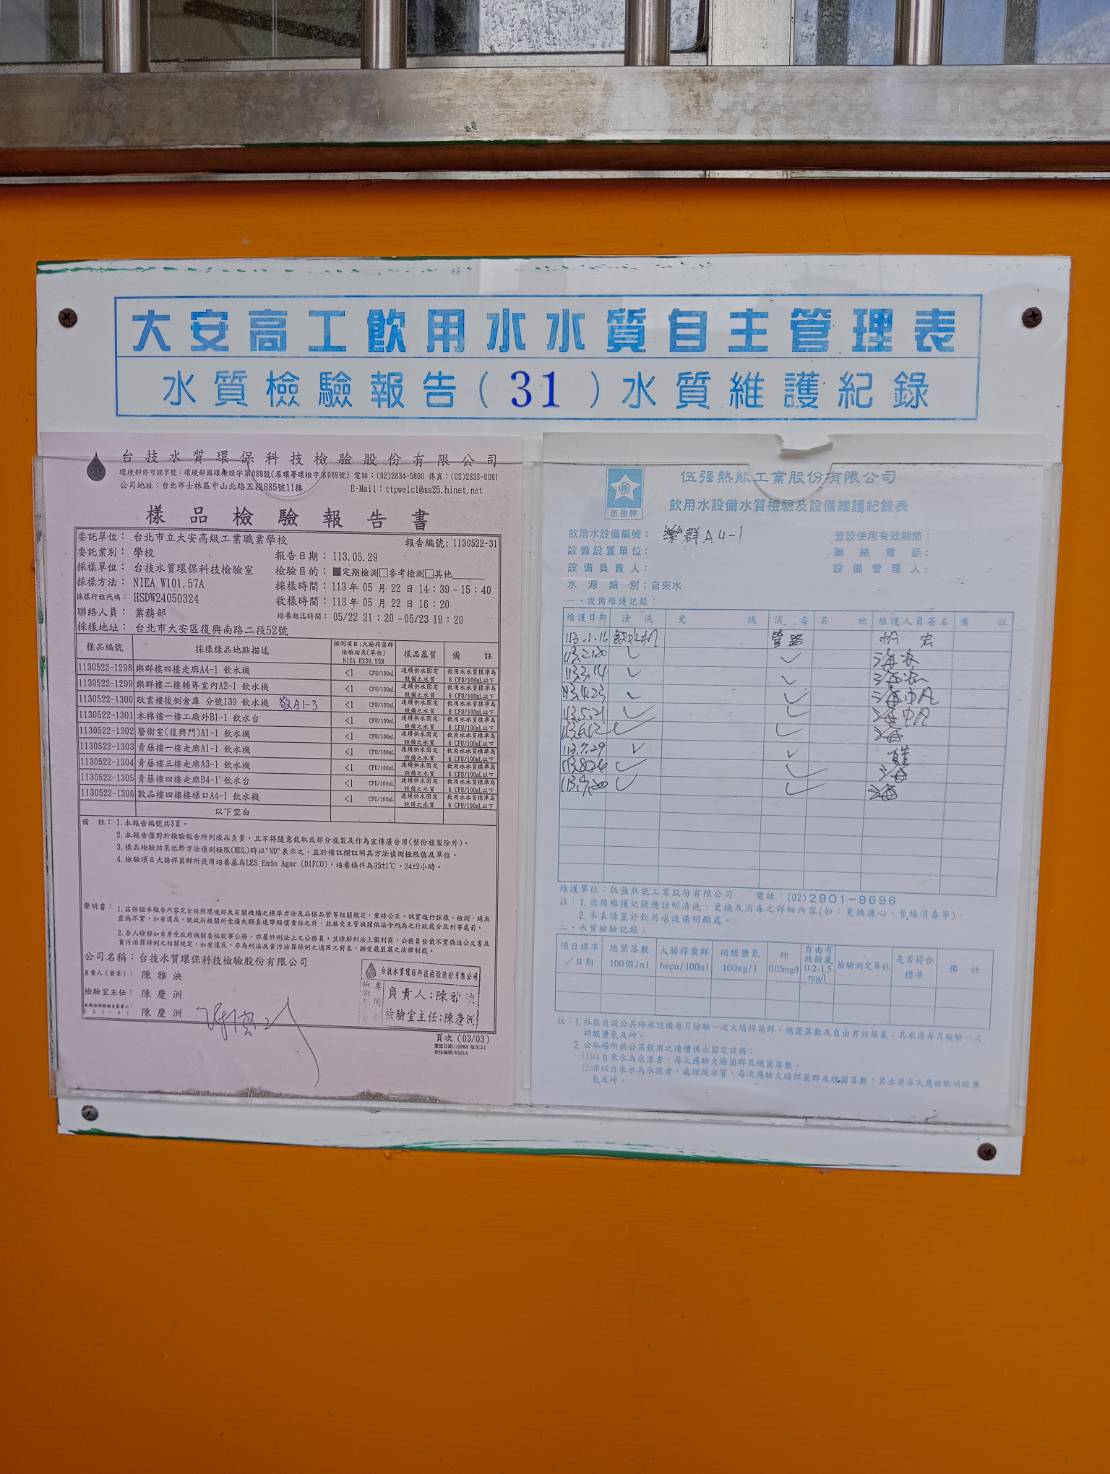 大安高工飲用水水質自主管理表
水質檢驗報告(31)水質維護紀錄
台技水質環保科技檢驗股份有限公司
公司地址：台北市士林區中山北路五段685號11樓 E-Mail：ttpwelcl@ms25.hinet.net
樣品檢驗報告書
委託單位：台北市立大安高級工業職業學校 報告編號：1130522-31
委託業別：學校 報告日期：113.05.29
採樣單位：台技水質環保科技檢驗室 檢驗目的：■定期檢測□參考檢測□其他
採樣方法：NIEA W101.57A 採樣時間：113 年 05 月 22 日 14：39 - 15：40
採樣行程代碼：HSDW24050324 收樣時間：113 年 05 月 22 日 16：20
聯絡人員：業務部 培養起迄時間：05/22 21：20 -05/23 19：20
採樣地址：台北市大安區復興南路二段52號
樣品編號 採樣樣品地點描述 檢測項目：大腸桿菌群 檢驗結果(單位) NIEA E230.55B 樣品基質 備註
1130522-1298 樂群樓四樓走廊A4-1 飲水機 <1 CFU/100mL
1130522-1299 樂群樓二樓輔導室內A2-1 飲水機 <1 CFU/100mL
1130522-1300 敬業樓後側倉庫 分號139 飲水機 敬A1-3 <1 CFU/100mL
1130522-1301 木棉樓一樓工廠外B1-1 飲水台 <1 CFU/100mL
1130522-1302 警衛室(復興門)A1-1 飲水機 <1 CFU/100mL
1130522-1303 青藤樓一樓走廊A1-1 飲水機 <1 CFU/100mL
1130522-1304 青藤樓三樓走廊A3-1 飲水機 <1 CFU/100mL
1130522-1305 青藤樓四樓走廊B4-1 飲水台 <1 CFU/100mL
1130522-1306 敦品樓四樓樓梯口A4-1 飲水機 <1 CFU/100mL
以下空白
備註：1.本報告編號共3頁。
2.本報告僅對於檢驗報告所列樣品負責，且不得隨意截取或部分複製及作為宣傳廣告用(整份複製除外)。
3.樣品檢驗結果低於方法偵測極限(MDL)時以"ND"表示之，並於備註欄註明其方法偵測極限值及單位。
4.檢驗項目大腸桿菌群所使用培養基為LES Endo Agar (DIFCO)，培養條件為35±1℃、24±2小時。
公司名稱：台技水質環保科技檢驗股份有限公司
負責人(簽章)：陳雅泱
檢驗室主任：陳慶洲
陳慶洲
台技水質環保科技檢驗股份有限公司
負責人：陳雅泱
檢驗室主任：陳慶洲
頁次 (03/03)
伍強牌
伍强熱能工業股份有限公司
飲用水設備水質檢驗及設備維護紀錄表
飲用水設備編號：樂群A4-1 登設使用有效期間：
設備設置單位： 聯絡電話：
設備負責人： 設備管理人：
水源類別：自來水
一、設備維護記錄：
維護日期 清洗 更換 消毒 其他 維護人員簽名 備註
113.1.16 飲水機 管路
113.2.20 ✓ ✓
113.3.14 ✓ ✓
113.4.23 ✓ ✓
113.5.21 ✓ ✓
113.6.12 ✓ ✓ 海
113.7.29 ✓ ✓
113.8.26 ✓ ✓ 海
113.9.20 ✓ ✓ 海
維護單位：伍強熱能工業股份有限公司 電話：(02)2901-9696
註：1.設備維護記錄應註明清洗、更換及消毒之詳細內容(如：更換濾心、管線消毒等)。
2.本表請置於飲用水設備明顯處。
二、水質檢驗記錄：
項目標準/日期 總菌落數 100個/ml 大腸桿菌群 6mpn/100ml 硝酸鹽氮 10mg/l 砷 0.05mg/l 自由有效餘氯 0.2-1.5 mg/l 檢驗測定單位 是否符合標準 備註
註：1.社區自設公共給水設備每月檢驗一次大腸桿菌群、總菌落數及自由有效餘氯；其水源每月檢驗一次
硝酸鹽氮及砷。
2.公私場所供公眾飲用之連續供水固定設備：
(1)以自來水為水源者，每次應驗大腸菌群及總菌落數。
(2)非以自來水為水源者，處理後水質，每次應驗大腸桿菌群及總菌落數；其水源每次應檢驗硝酸鹽
氮及砷。